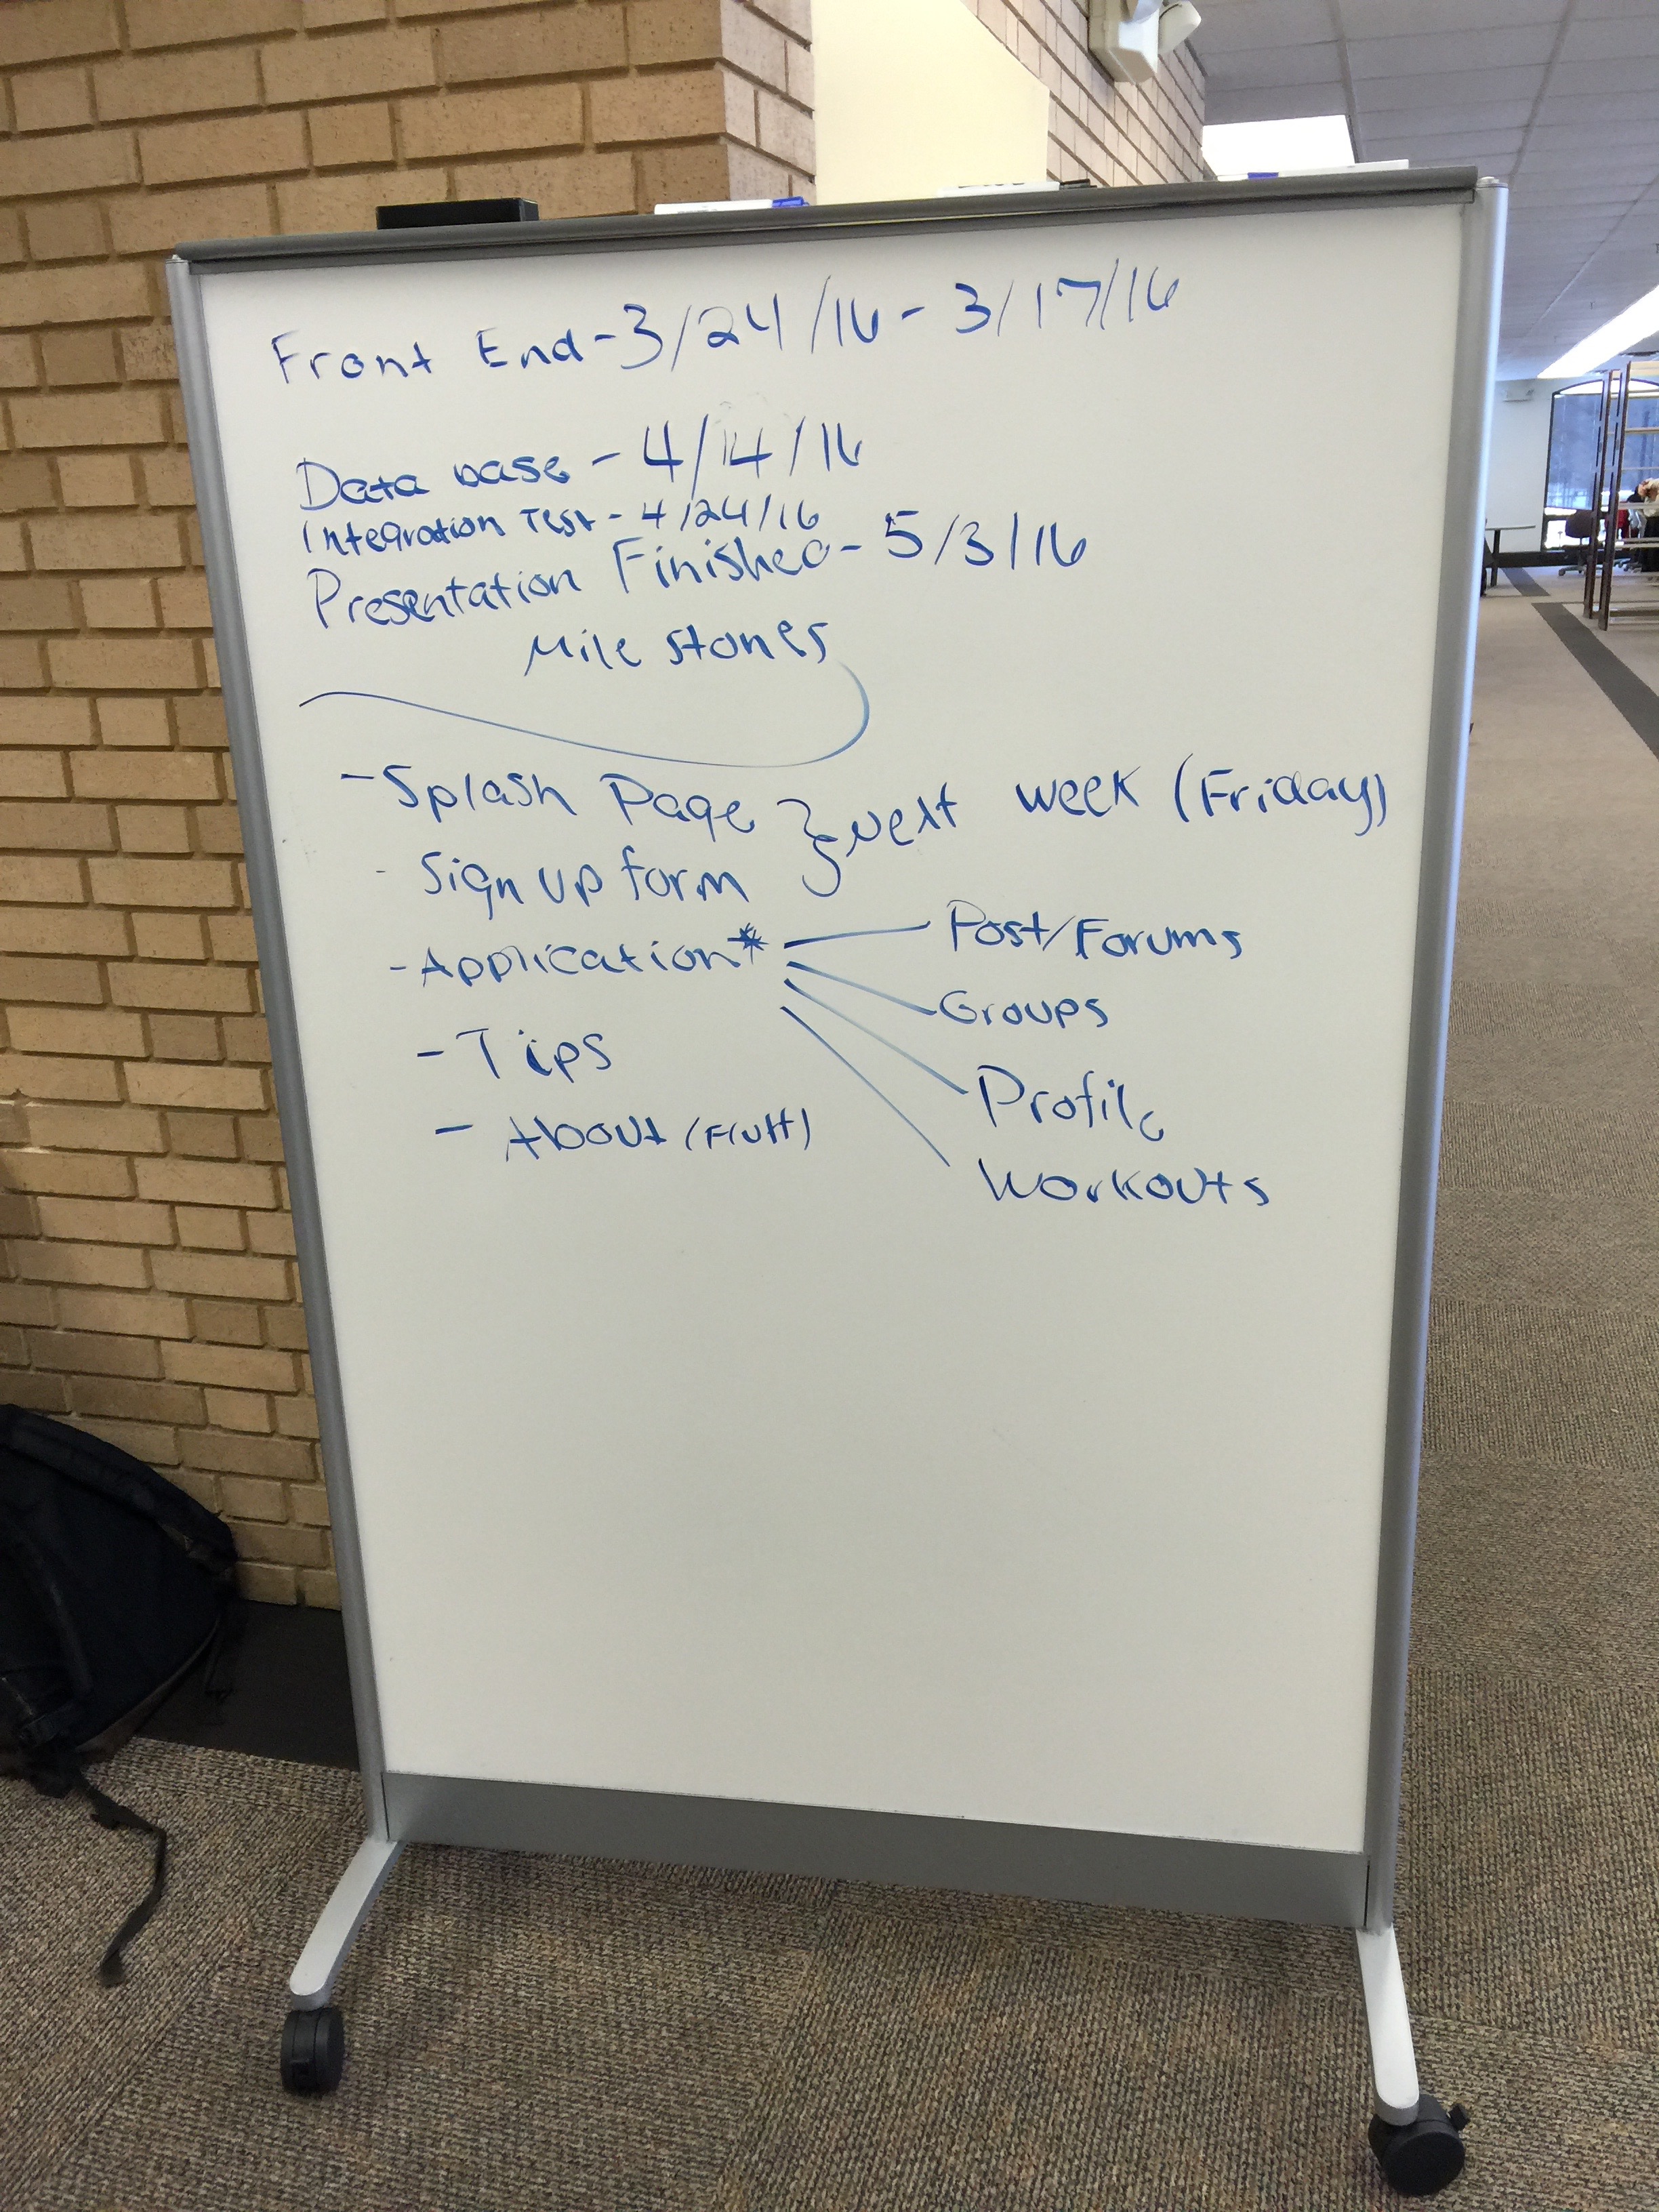 Front End - 3/24/16 - 3/17/16
Data base - 4/14/16
Integration Test - 4/24/16
Presentation Finished - 5/3/16
Mile stones
- Splash Page } Next week (Friday)
- Sign up form
- Application* Post/Forums
Groups
- Tips
Profile
- About
Workouts